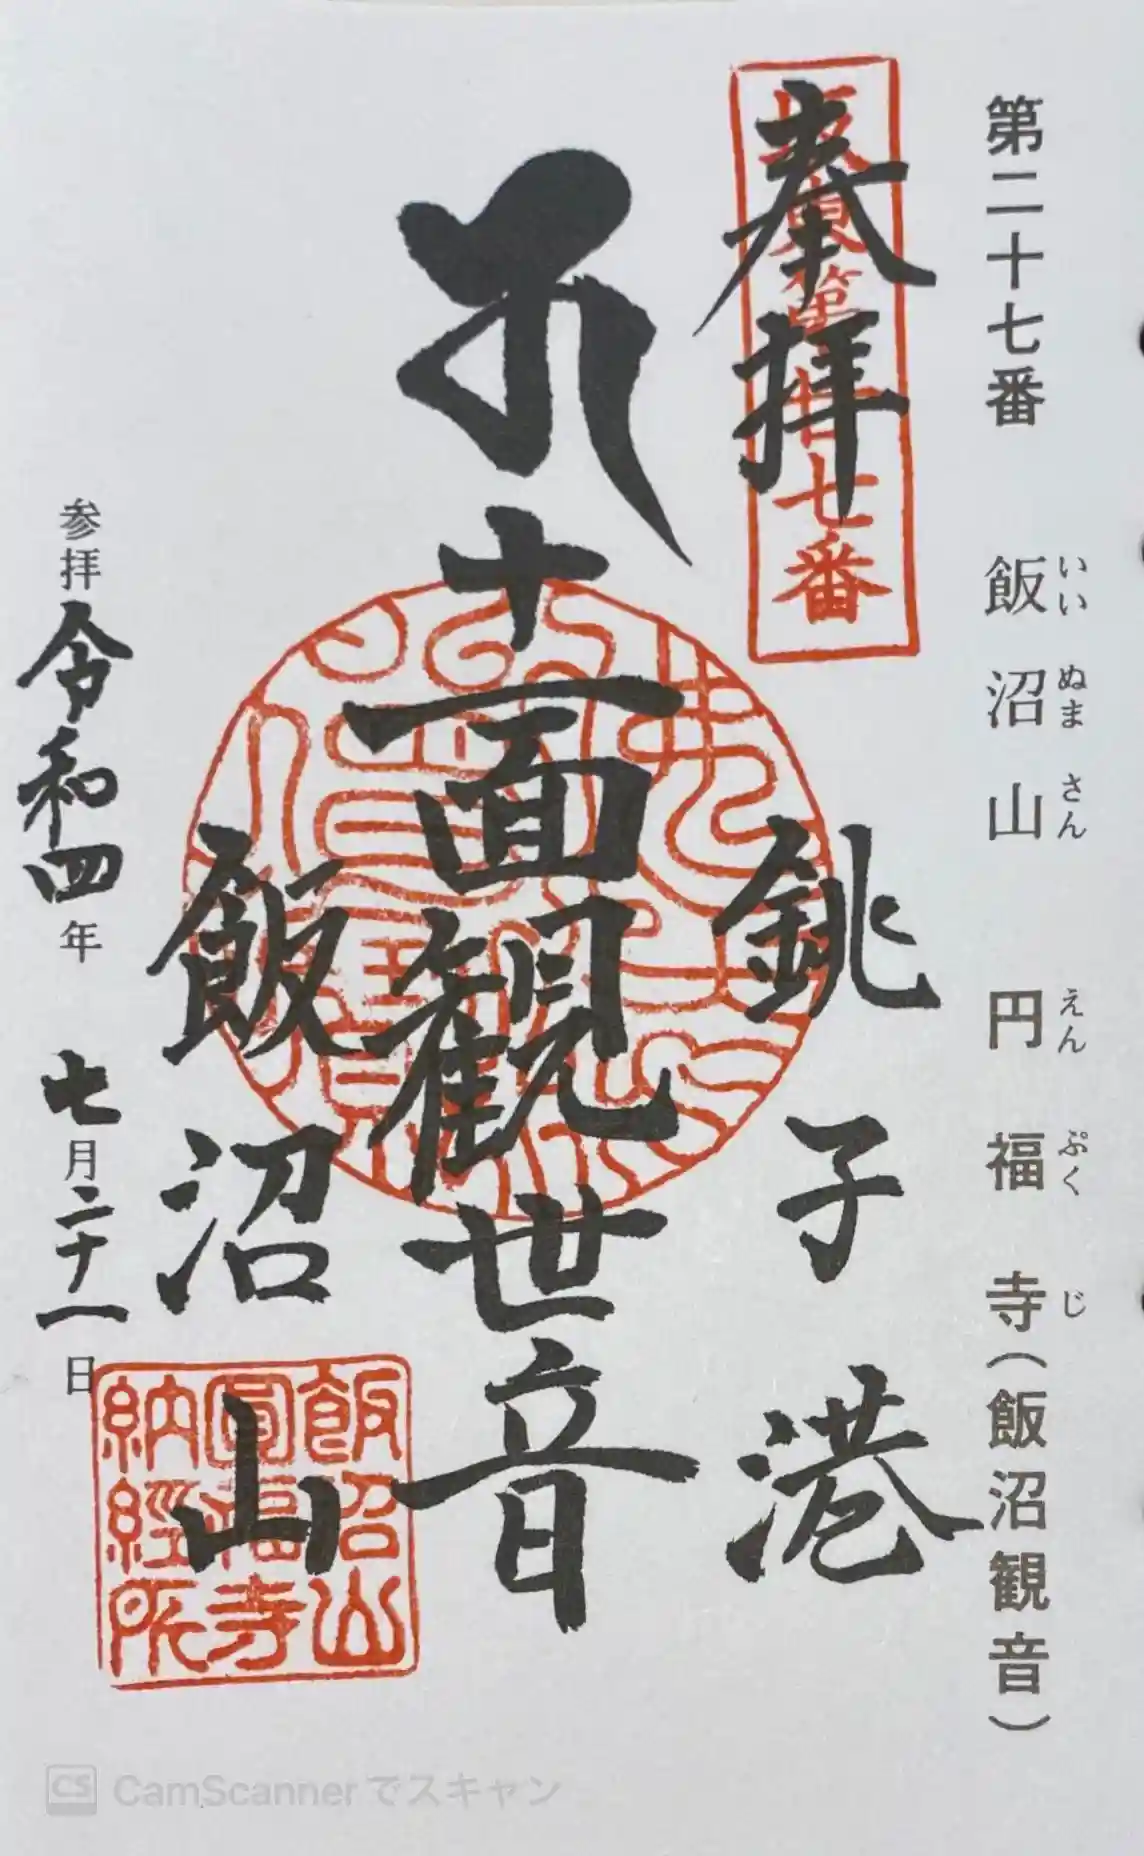 第二十七番 飯沼山 円福寺(飯沼観音)
いい ぬま さん えん ぷく じ
奉拝
坂東第廿七番
銚子港
十一面観世音
飯沼山
飯沼山
圓福寺
納經所
参拝 令和四年 七月二十一日
CS CamScannerでスキャン